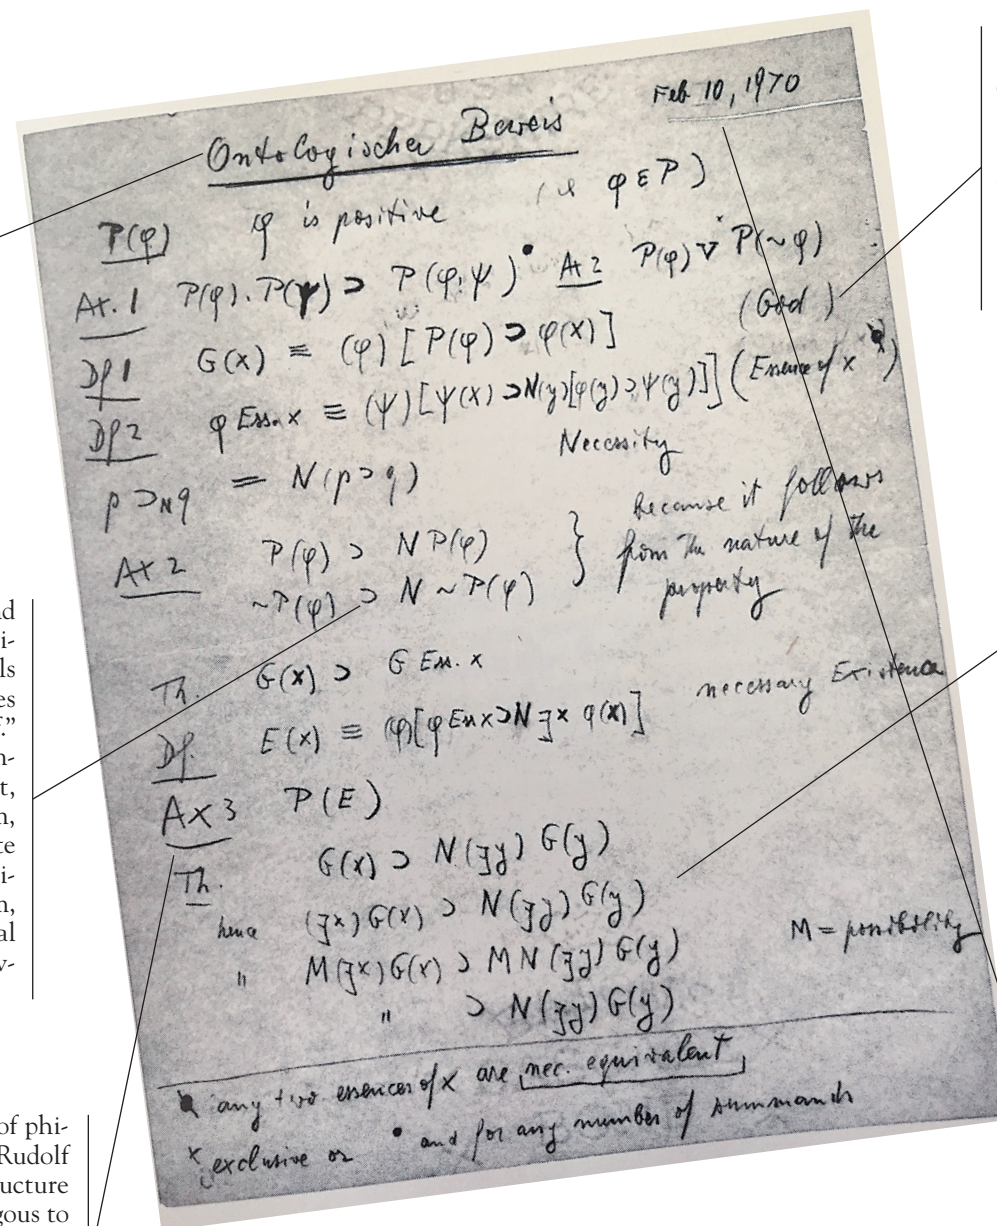 Feb 10, 1970
Ontologischer Beweis
P(φ) φ is positive (ie φ ε P)
Ax.1 P(φ).P(ψ) ⊃ P(φ.ψ)• Ax 2 P(φ) ∨ˣ P(~φ)
Df 1 G(x) ≡ (φ)[P(φ) ⊃ φ(x)] (God)
Df 2 φ Ess. x ≡ (ψ)[ψ(x) ⊃ N(y)[φ(y) ⊃ ψ(y)]] (Essence of x)
p ⊃ɴ q = N(p ⊃ q) Necessity
Ax 2 P(φ) ⊃ N P(φ)
~P(φ) ⊃ N ~P(φ)
} because it follows
from the nature of the
property
Th. G(x) ⊃ G Ess. x
Df. E(x) ≡ (φ)[φ Ess x ⊃ N ∃x φ(x)] necessary Existence
Ax 3 P(E)
Th. G(x) ⊃ N(∃y) G(y)
hence (∃x) G(x) ⊃ N(∃y) G(y)
" M(∃x) G(x) ⊃ M N(∃y) G(y) M = possibility
" ⊃ N(∃y) G(y)
any two essences of x are nec. equivalent
x exclusive or • and for any number of summands
ad
i-
ls
es
f.”
n-
t,
n,
te
i-
n,
al
v-
of phi-
Rudolf
ucture
gous to